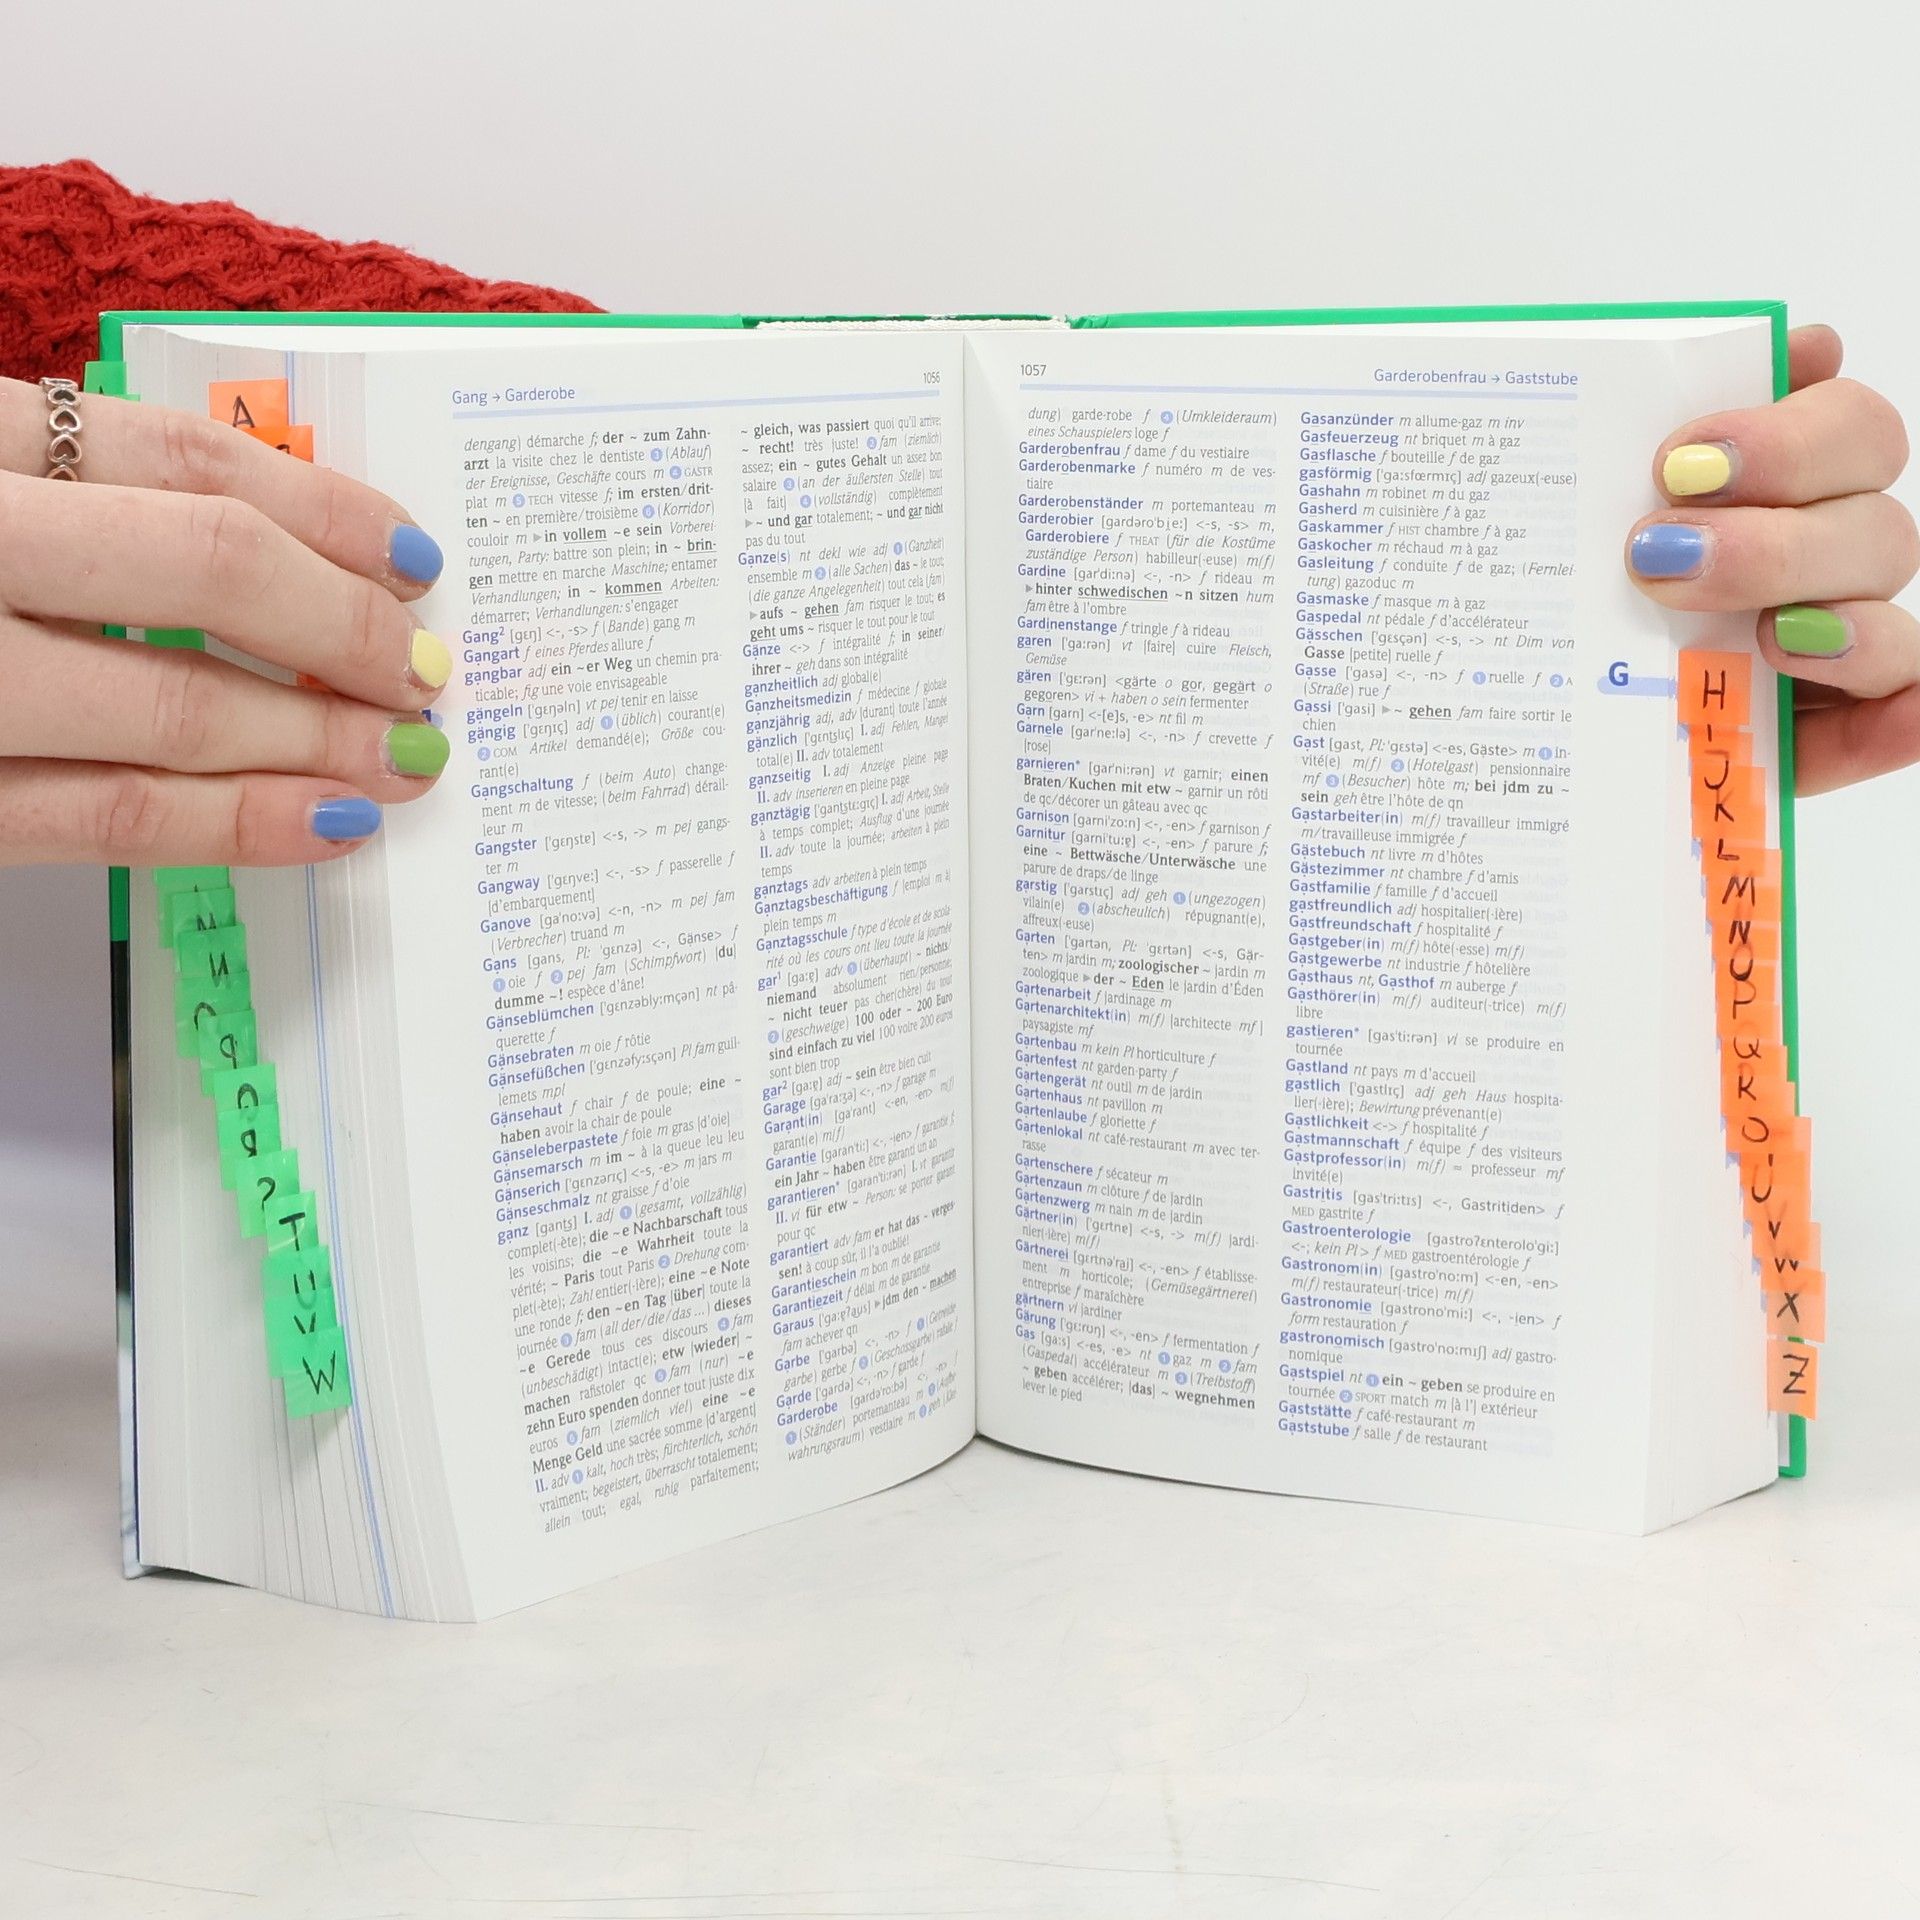 Gang → Garderobe
1056
dengang) démarche f; der ~ zum Zahn-
arzt la visite chez le dentiste 3 (Ablauf)
der Ereignisse, Geschäfte cours m 4 GASTR
plat m 5 TECH vitesse f; im ersten/drit-
ten ~ en première/troisième 6 (Korridor)
couloir m ▶in vollem ~e sein Vorberei-
tungen, Party: battre son plein; in ~ brin-
gen mettre en marche Maschine; entamer
Verhandlungen; in ~ kommen Arbeiten:
démarrer; Verhandlungen: s'engager
Gang² [gɛŋ] <-, -s> f (Bande) gang m
Gangart f eines Pferdes allure f
gangbar adj ein ~er Weg un chemin pra-
ticable; fig une voie envisageable
gängeln ['gɛŋəln] vt pej tenir en laisse
gängig ['gɛŋɪç] adj 1 (üblich) courant(e)
2 COM Artikel demandé(e); Größe cou-
rant(e)
Gangschaltung f (beim Auto) change-
ment m de vitesse; (beim Fahrrad) dérail-
leur m
Gangster ['gɛŋstɐ] <-s, -> m pej gangs-
ter m
Gangway ['gɛŋve:] <-, -s> f passerelle f
[d'embarquement]
Ganove [ga'no:və] <-n, -n> m pej fam
(Verbrecher) truand m
Gans [gans, Pl: 'gɛnzə] <-, Gänse> f
1 oie f 2 pej fam (Schimpfwort) [du]
dumme ~! espèce d'âne!
Gänseblümchen ['gɛnzəbly:mçən] nt pâ-
querette f
Gänsebraten m oie f rôtie
Gänsefüßchen ['gɛnzəfy:sçən] Pl fam guil-
lemets mpl
Gänsehaut f chair f de poule; eine ~
haben avoir la chair de poule
Gänseleberpastete f foie m gras [d'oie]
Gänsemarsch m im ~ à la queue leu leu
Gänserich ['gɛnzərɪç] <-s, -e> m jars m
Gänseschmalz nt graisse f d'oie
ganz [gants] I. adj 1 (gesamt, vollzählig)
complet(-ète); die ~e Nachbarschaft tous
les voisins; die ~e Wahrheit toute la
vérité; ~ Paris tout Paris 2 Drehung com-
plet(-ète); Zahl entier(-ière); eine ~e Note
une ronde f; den ~en Tag [über] toute la
journée 3 fam (all der/die/das ...) dieses
~e Gerede tous ces discours 4 fam
(unbeschädigt) intact(e); etw [wieder] ~
machen rafistoler qc 5 fam (nur) ~e
zehn Euro spenden donner tout juste dix
euros 6 fam (ziemlich viel) eine ~e
Menge Geld une sacrée somme [d'argent]
II. adv 1 kalt, hoch très; fürchterlich, schön
vraiment; begeistert, überrascht totalement;
allein tout; egal, ruhig parfaitement;
~ gleich, was passiert quoi qu'il arrive;
~ recht! très juste! 2 fam (ziemlich)
assez; ein ~ gutes Gehalt un assez bon
salaire 3 (an der äußersten Stelle) tout
[à fait] 4 (vollständig) complètement
▶~ und gar totalement; ~ und gar nicht
pas du tout
Ganze(s) nt dekl wie adj 1 (Ganzheit)
ensemble m 2 (alle Sachen) das ~ le tout;
(die ganze Angelegenheit) tout cela (fam)
▶aufs ~ gehen fam risquer le tout; es
geht ums ~ risquer le tout pour le tout
Gänze <-> f intégralité f; in seiner/
ihrer ~ geh dans son intégralité
ganzheitlich adj global(e)
Ganzheitsmedizin f médecine f globale
ganzjährig adj, adv [durant] toute l'année
gänzlich ['gɛntslɪç] I. adj Fehlen, Mangel
total(e) II. adv totalement
ganzseitig I. adj Anzeige pleine page
II. adv inserieren en pleine page
ganztägig ['gantstɛ:gɪç] I. adj Arbeit, Stelle
à temps complet; Ausflug d'une journée
II. adv toute la journée; arbeiten à plein
temps
ganztags adv arbeiten à plein temps
Ganztagsbeschäftigung f [emploi m à]
plein temps m
Ganztagsschule f type d'école et de scola-
rité où les cours ont lieu toute la journée
gar¹ [ga:ɐ] adv 1 (überhaupt) ~ nichts/
niemand absolument rien/personne;
~ nicht teuer pas cher(chère) du tout
2 (geschweige) 100 oder ~ 200 Euro
sind einfach zu viel 100 voire 200 euros
sont bien trop
gar² [ga:ɐ] adj ~ sein être bien cuit
Garage [ga'ra:ʒə] <-, -n> f garage m
Garant(in) [ga'rant] <-en, -en> m(f)
garant(e) m(f)
Garantie [garan'ti:] <-, -ien> f garantie f;
ein Jahr ~ haben être garanti un an
garantieren* [garan'ti:rən] I. vt garantir
II. vi für etw ~ Person: se porter garant
pour qc
garantiert adv fam er hat das ~ verges-
sen! à coup sûr, il l'a oublié!
Garantieschein m bon m de garantie
Garantiezeit f délai m de garantie
Garaus ['ga:ɐʔaus] ▶jdm den ~ machen
fam achever qn
Garbe ['garbə] <-, -n> f 1 (Getreide
garbe) gerbe f 2 (Geschossgarbe) rafale f
Garde ['gardə] <-, -n> f garde f
Garderobe [gardə'ro:bə] <-, -n> f
1 (Ständer) portemanteau m 2 (Aufbe
wahrungsraum) vestiaire m 3 geh (Klei
1057
Garderobenfrau → Gaststube
dung) garde-robe f 4 (Umkleideraum)
eines Schauspielers loge f
Garderobenfrau f dame f du vestiaire
Garderobenmarke f numéro m de ves-
tiaire
Garderobenständer m portemanteau m
Garderobier [gardəro'bi̯e:] <-s, -s> m,
Garderobiere f THEAT (für die Kostüme
zuständige Person) habilleur(-euse) m(f)
Gardine [gar'di:nə] <-, -n> f rideau m
▶hinter schwedischen ~n sitzen hum
fam être à l'ombre
Gardinenstange f tringle f à rideau
garen ['ga:rən] vt [faire] cuire Fleisch,
Gemüse
gären ['gɛ:rən] <gärte o gor, gegärt o
gegoren> vi + haben o sein fermenter
Garn [garn] <-[e]s, -e> nt fil m
Garnele [gar'ne:lə] <-, -n> f crevette f
[rose]
garnieren* [gar'ni:rən] vt garnir; einen
Braten/Kuchen mit etw ~ garnir un rôti
de qc/décorer un gâteau avec qc
Garnison [garni'zo:n] <-, -en> f garnison f
Garnitur [garni'tu:ɐ] <-, -en> f parure f;
eine ~ Bettwäsche/Unterwäsche une
parure de draps/de linge
garstig ['garstɪç] adj geh 1 (ungezogen)
vilain(e) 2 (abscheulich) répugnant(e),
affreux(-euse)
Garten ['gartən, Pl: 'gɛrtən] <-s, Gär-
ten> m jardin m; zoologischer ~ jardin m
zoologique ▶der ~ Eden le jardin d'Éden
Gartenarbeit f jardinage m
Gartenarchitekt(in) m(f) [architecte mf]
paysagiste mf
Gartenbau m kein Pl horticulture f
Gartenfest nt garden-party f
Gartengerät nt outil m de jardin
Gartenhaus nt pavillon m
Gartenlaube f gloriette f
Gartenlokal nt café-restaurant m avec ter-
rasse
Gartenschere f sécateur m
Gartenzaun m clôture f de jardin
Gartenzwerg m nain m de jardin
Gärtner(in) ['gɛrtnɐ] <-s, -> m(f) jardi-
nier(-ière) m(f)
Gärtnerei [gɛrtnə'rai] <-, -en> f établisse-
ment m horticole; (Gemüsegärtnerei)
entreprise f maraîchère
gärtnern vi jardiner
Gärung ['gɛ:rʊŋ] <-, -en> f fermentation f
Gas [ga:s] <-es, -e> nt 1 gaz m 2 fam
(Gaspedal) accélérateur m 3 (Treibstoff)
~ geben accélérer; [das] ~ wegnehmen
lever le pied
Gasanzünder m allume-gaz m inv
Gasfeuerzeug nt briquet m à gaz
Gasflasche f bouteille f de gaz
gasförmig ['ga:sfœrmɪç] adj gazeux(-euse)
Gashahn m robinet m du gaz
Gasherd m cuisinière f à gaz
Gaskammer f HIST chambre f à gaz
Gaskocher m réchaud m à gaz
Gasleitung f conduite f de gaz; (Fernlei-
tung) gazoduc m
Gasmaske f masque m à gaz
Gaspedal nt pédale f d'accélérateur
Gässchen ['gɛsçən] <-s, -> nt Dim von
Gasse [petite] ruelle f
Gasse ['gasə] <-, -n> f 1 ruelle f 2 A
(Straße) rue f
Gassi ['gasi] ▶~ gehen fam faire sortir le
chien
Gast [gast, Pl: 'gɛstə] <-es, Gäste> m 1 in-
vité(e) m(f) 2 (Hotelgast) pensionnaire
mf 3 (Besucher) hôte m; bei jdm zu ~
sein geh être l'hôte de qn
Gastarbeiter(in) m(f) travailleur immigré
m/travailleuse immigrée f
Gästebuch nt livre m d'hôtes
Gästezimmer nt chambre f d'amis
Gastfamilie f famille f d'accueil
gastfreundlich adj hospitalier(-ière)
Gastfreundschaft f hospitalité f
Gastgeber(in) m(f) hôte(-esse) m(f)
Gastgewerbe nt industrie f hôtelière
Gasthaus nt, Gasthof m auberge f
Gasthörer(in) m(f) auditeur(-trice) m(f)
libre
gastieren* [gas'ti:rən] vi se produire en
tournée
Gastland nt pays m d'accueil
gastlich ['gastlɪç] adj geh Haus hospita-
lier(-ière); Bewirtung prévenant(e)
Gastlichkeit <-> f hospitalité f
Gastmannschaft f équipe f des visiteurs
Gastprofessor(in) m(f) ≈ professeur mf
invité(e)
Gastritis [gas'tri:tɪs] <-, Gastritiden> f
MED gastrite f
Gastroenterologie [gastroʔɛnterolo'gi:]
<-; kein Pl> f MED gastroentérologie f
Gastronom(in) [gastro'no:m] <-en, -en>
m(f) restaurateur(-trice) m(f)
Gastronomie [gastrono'mi:] <-, -ien> f
form restauration f
gastronomisch [gastro'no:mɪʃ] adj gastro-
nomique
Gastspiel nt 1 ein ~ geben se produire en
tournée 2 SPORT match m [à l'] extérieur
Gaststätte f café-restaurant m
Gaststube f salle f de restaurant
G
A
M
N
T
U
V
W
H
I
J
K
L
M
N
O
P
Q
R
U
V
W
X
Z